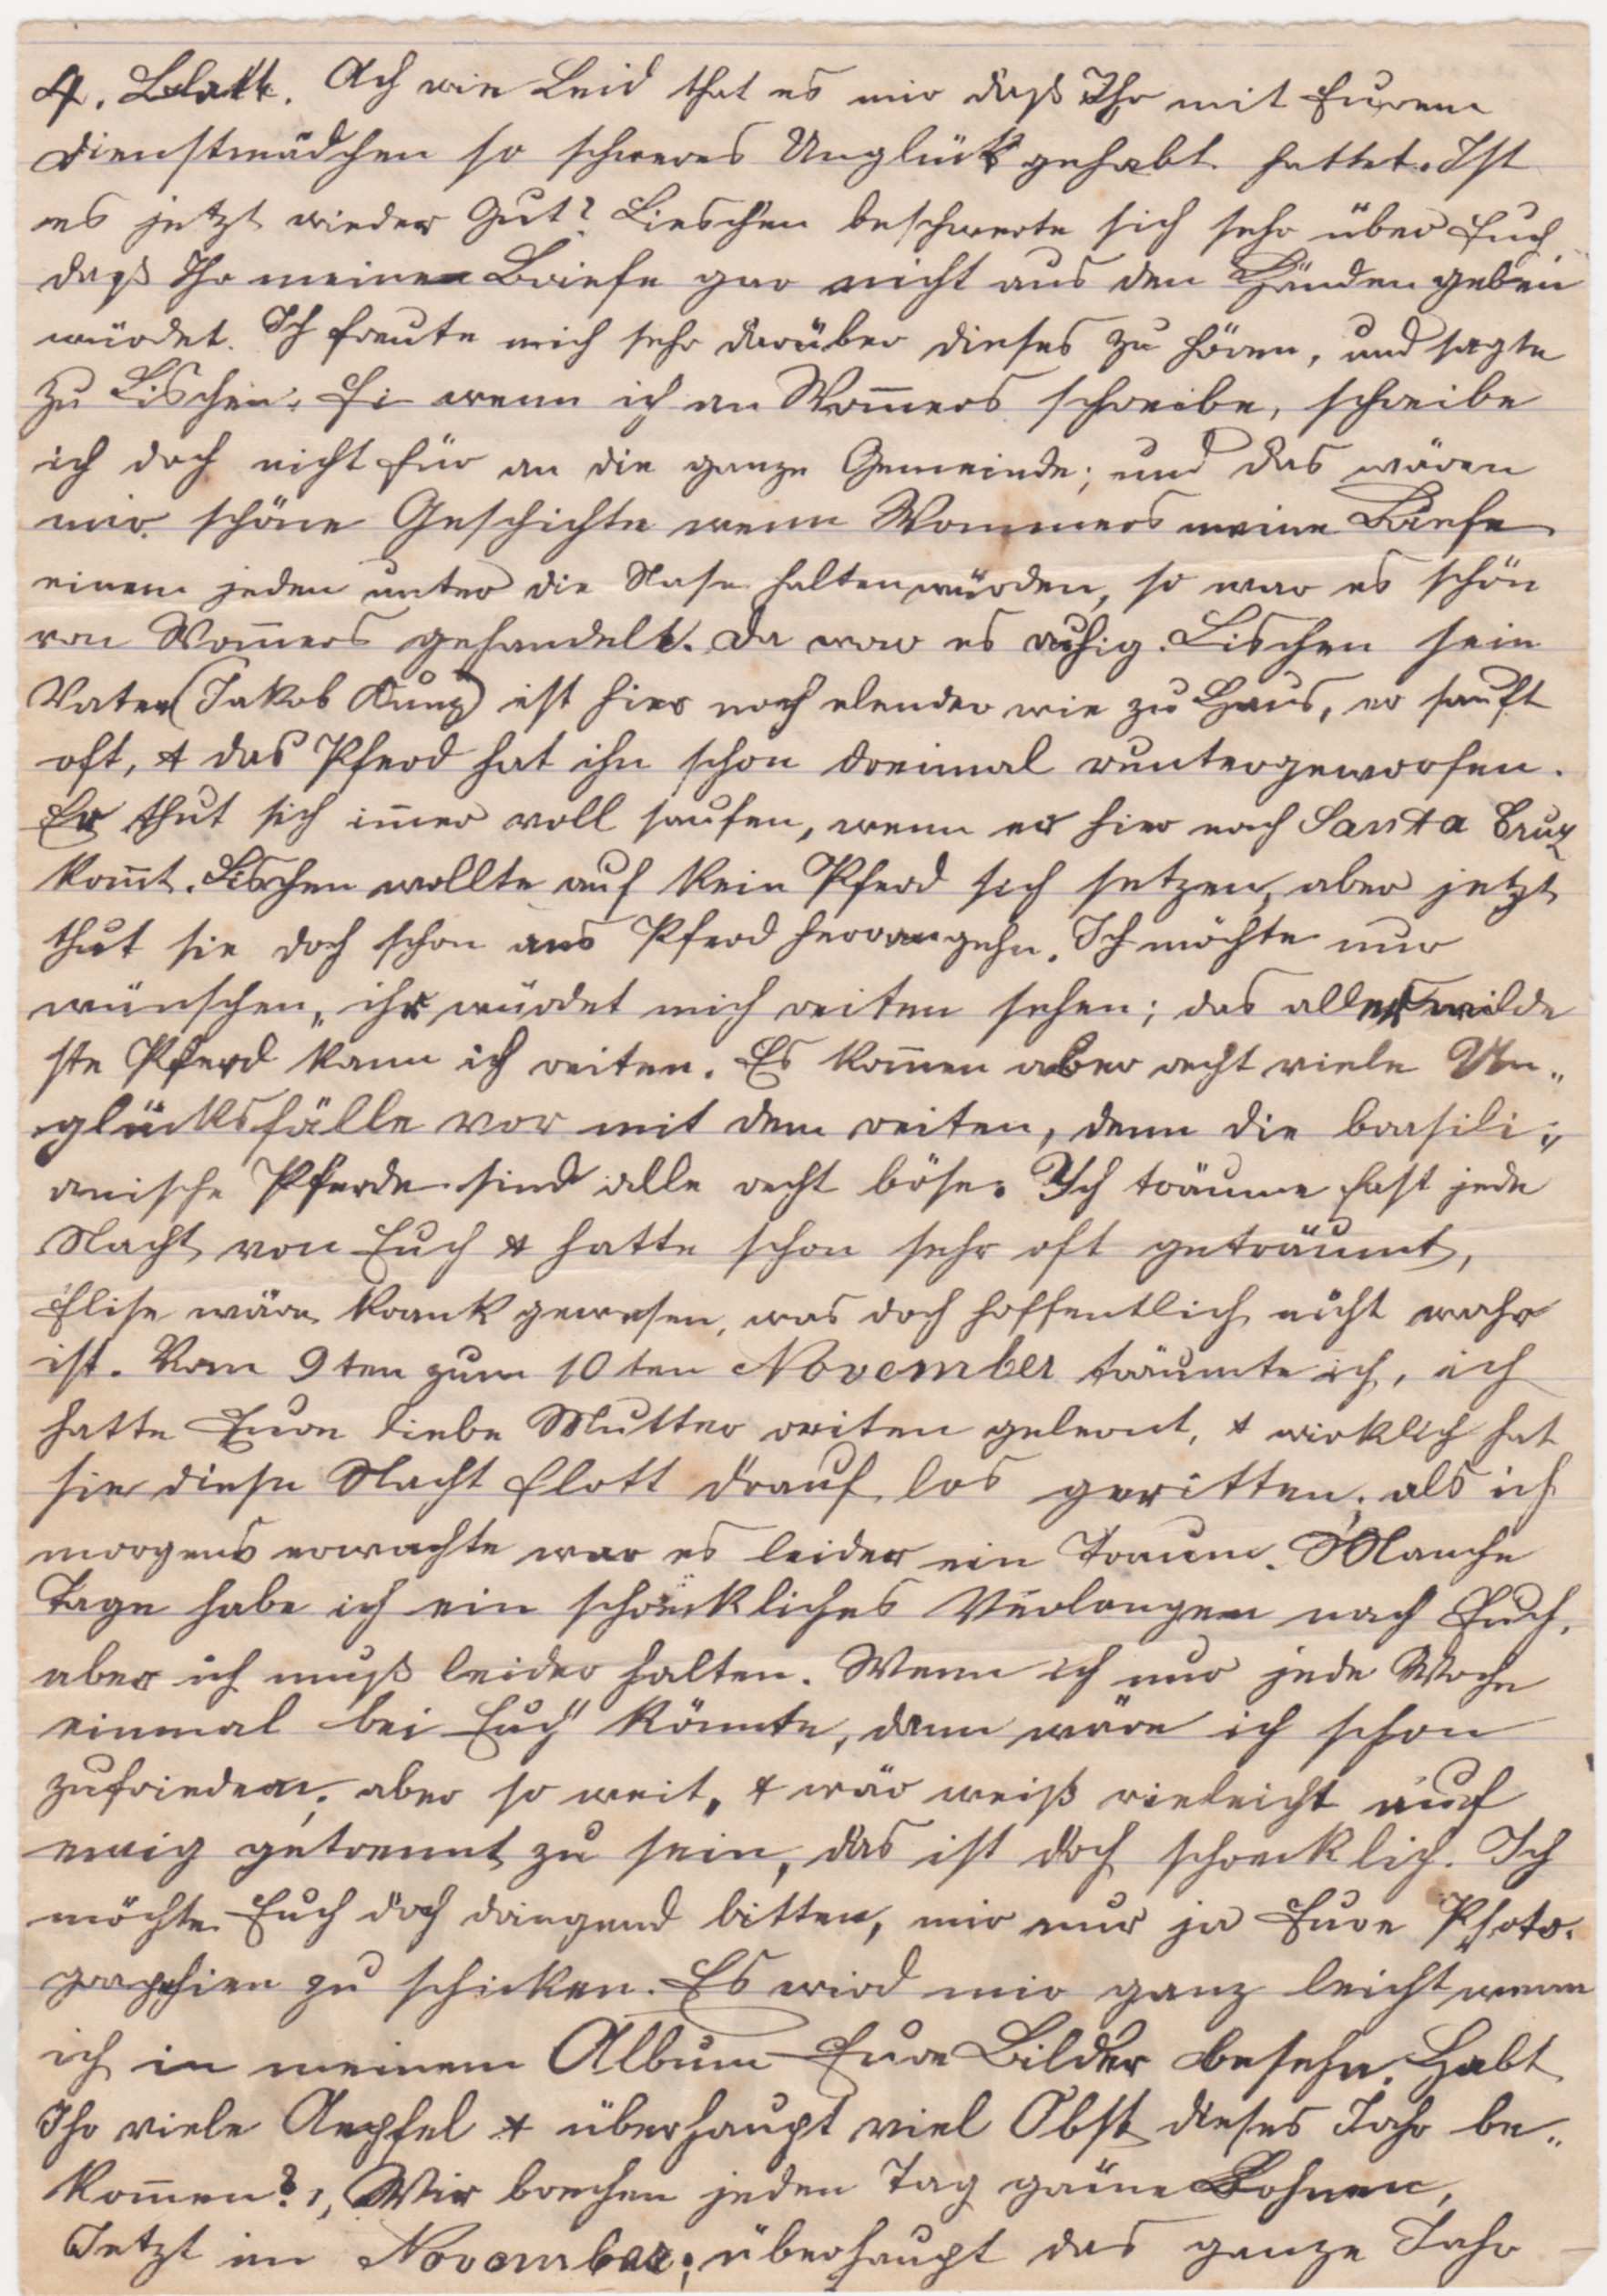 4. Blatt. Ach wie Leid that es mir daß Ihr mit Eurem
Dienstmädchen so schweres Unglück gehabt hattet. Ist
es jetzt wieder Gut? Lieschen beschwerte sich sehr über Euch
daß Ihr meine Briefe gar nicht aus den Händen geben
würdet. Ich freute mich sehr darüber dieses zu hören, und sagte
zu Lischen: Ei wenn ich an Wom̅ers schreibe, schreibe
ich doch nicht für an die ganze Gemeinde; und das wären
mir schöne Geschichte wenn Wommers meine Briefe
einem jeden unter die Nase halten würden, so war es schön
von Wom̅ers gehandelt. Da war es ruhig. Lischen sein
Vater (Jakob Kunz) ist hier noch elender wie zu Haus, er sauft
oft, & das Pferd hat ihn schon dreimal runtergeworfen.
Er thut sich im̅er voll saufen, wenn er hier nach Santa Cruz
kom̅t. Lischen wollte auf kein Pferd sich setzen, aber jetzt
thut sie doch schon ans Pferd herrangehn. Ich möchte nur
wünschen, ihr würdet mich reiten sehen; das allerwilde
ste Pferd kann ich reiten. Es kom̅en aber recht viele Un„
glücksfälle vor mit dem reiten, denn die brasili„
anische Pferde sind alle recht böse. Ich träume fast jede
Nacht von Euch & hatte schon sehr oft geträumt,
Elise wäre krank gewesen, was doch hoffentlich nicht wahr
ist. Vom 9ten zum 10ten November träumte ich, ich
hatte Eure liebe Mutter reiten gelernt, & wirklich hat
sie diese Nacht flott drauf los geritten; als ich
morgens erwachte war es leider ein Traum. Manche
Tage habe ich ein schreckliches Verlangen nach Euch,
aber ich muß leider halten. Wenn ich nur jede Woche
einmal bei Euch könnte, dann wäre ich schon
zufrieden; aber so weit, & wär weiß vieleicht auf
ewig getrennt zu sein, das ist doch schrecklich. Ich
möchte Euch doch dringend bitten, mir nur ja Eure Photo-
graphien zu schicken. Es wird mir ganz leicht wenn
ich in meinem Album Eure Bilder besehn. Habt
Ihr viele Aepfel & überhaupt viel Obst dieses Jahr be„
kom̅en?, Wir brechen jeden Tag grüne Bohnen,
Jetzt im November; überhaupt das ganze Jahr